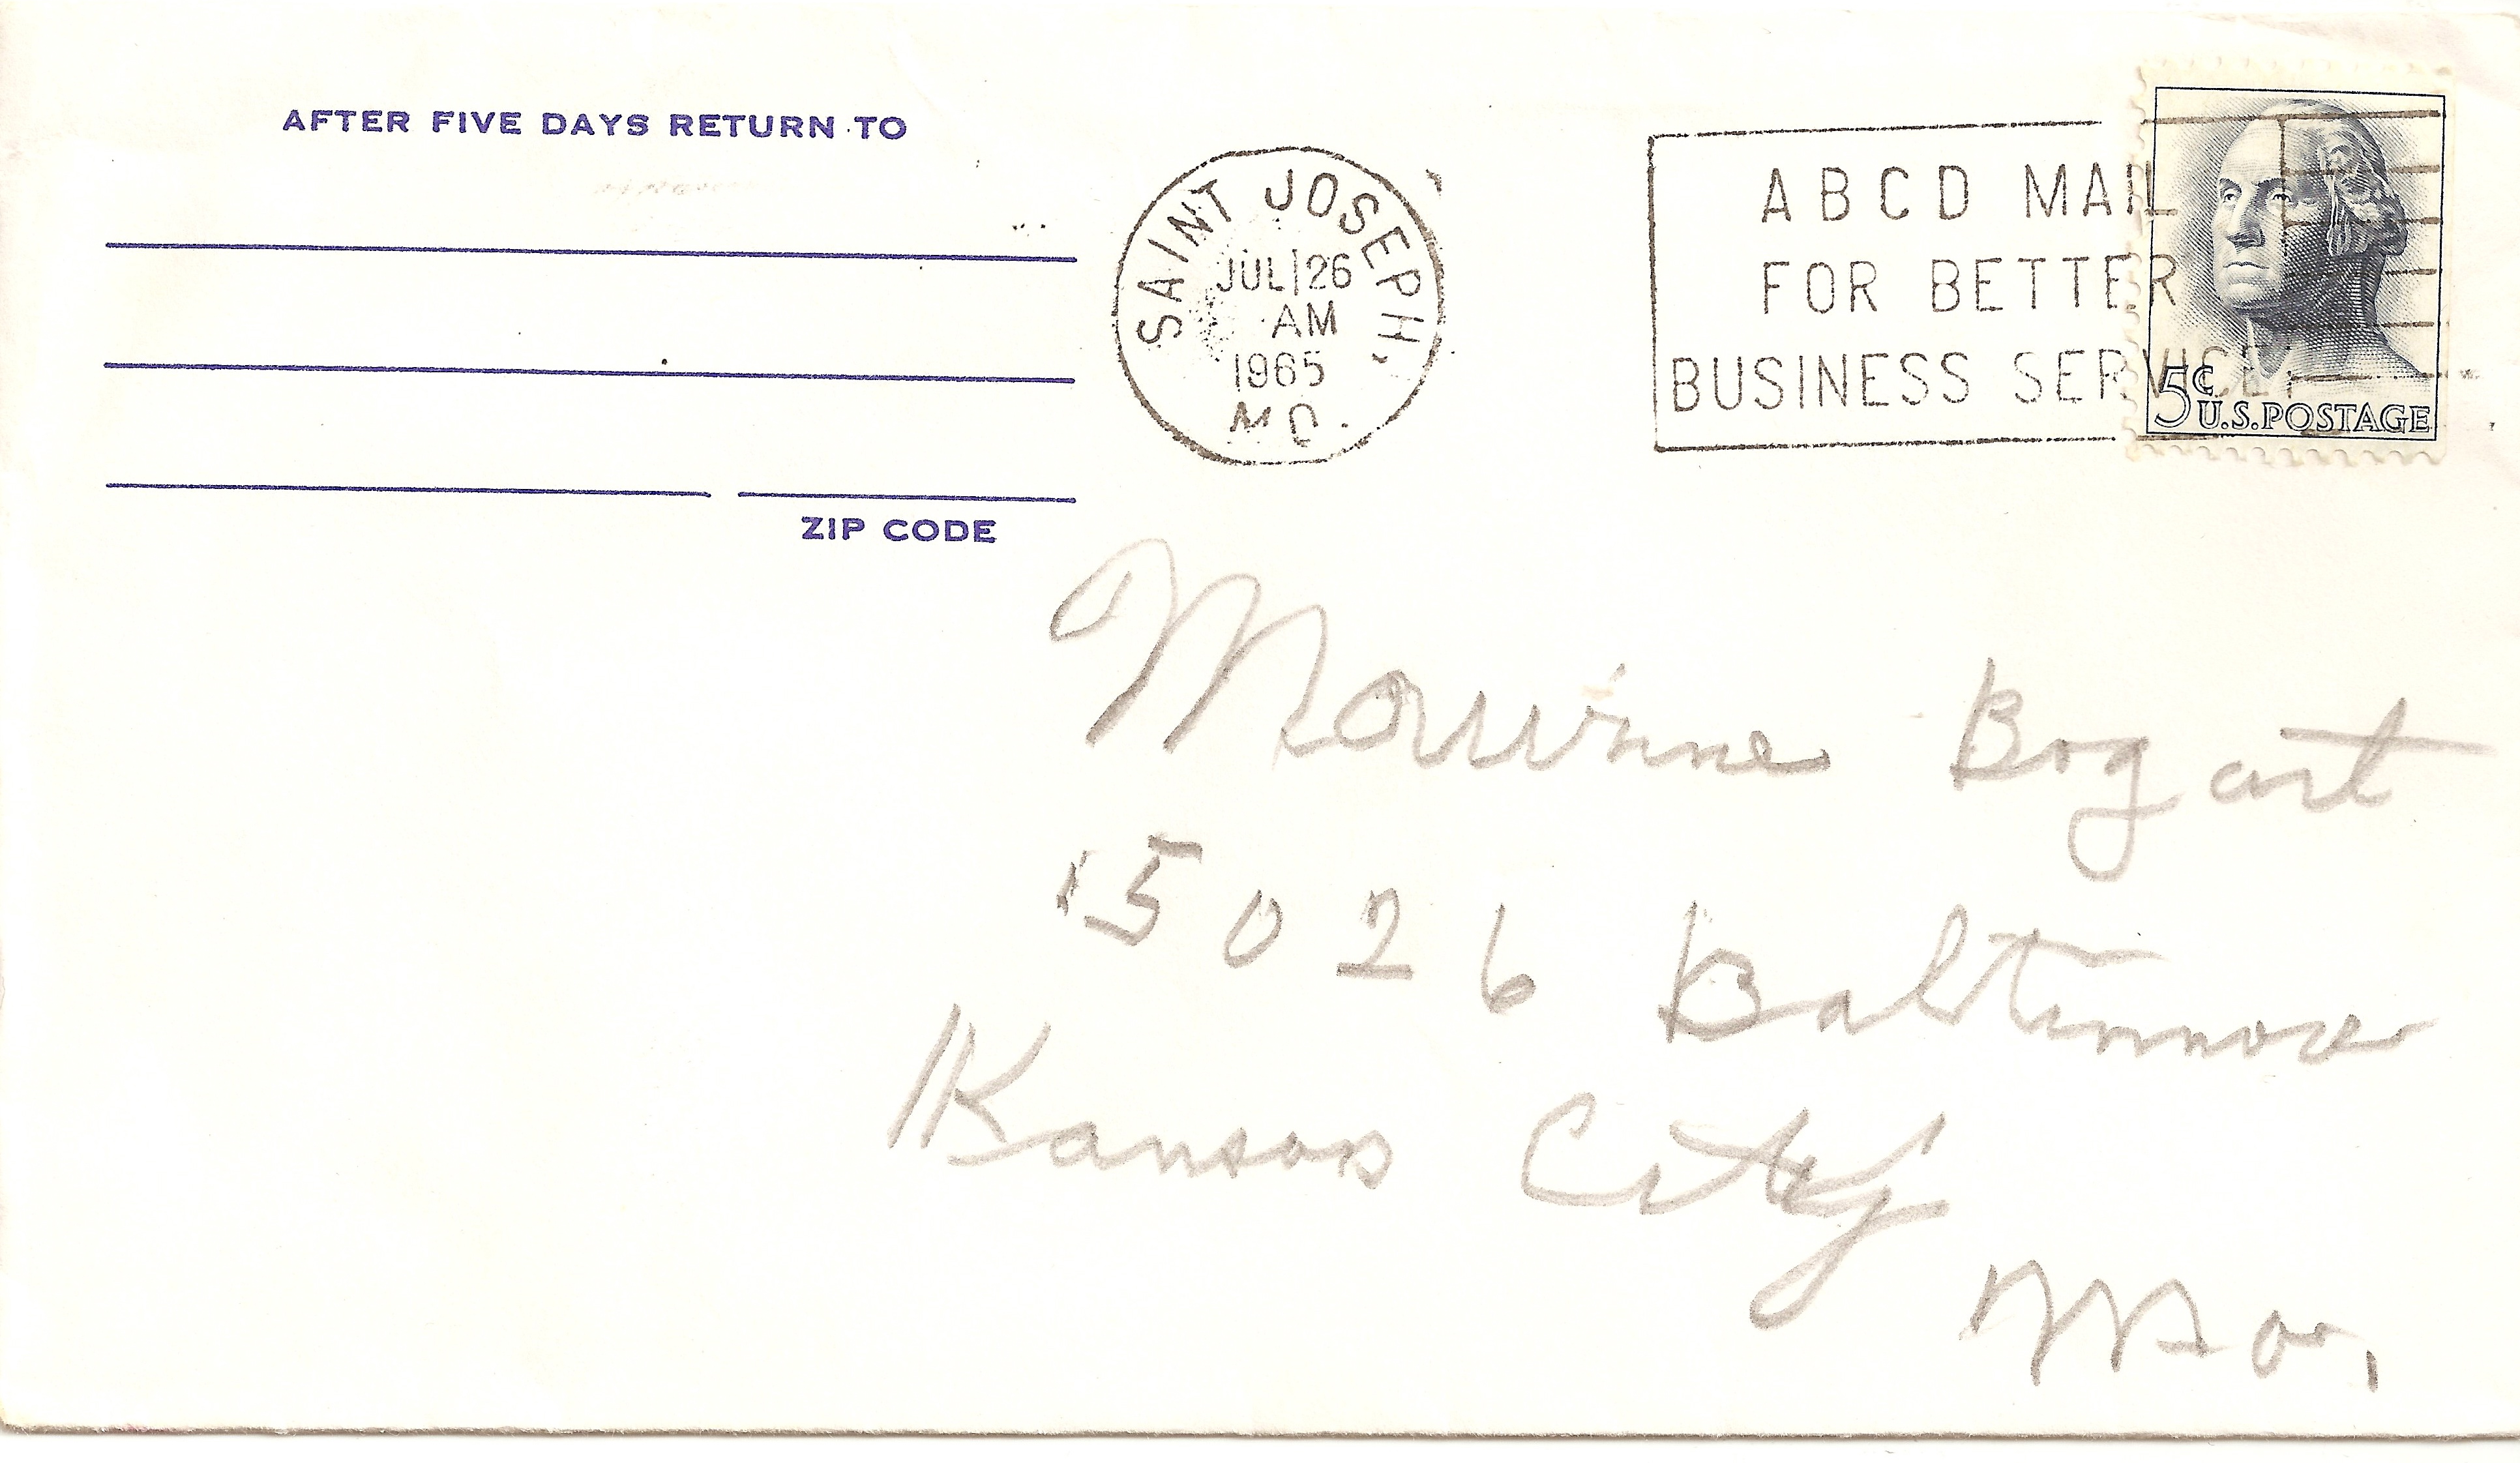 AFTER FIVE DAYS RETURN TO
ZIP CODE
SAINT JOSEPH,
JUL 26
AM
1965
MO.
ABCD MAIL
FOR BETTER
BUSINESS SERVICE
5¢ U.S. POSTAGE
Bogart
5026 Baltimore
Kansas City
Mo.